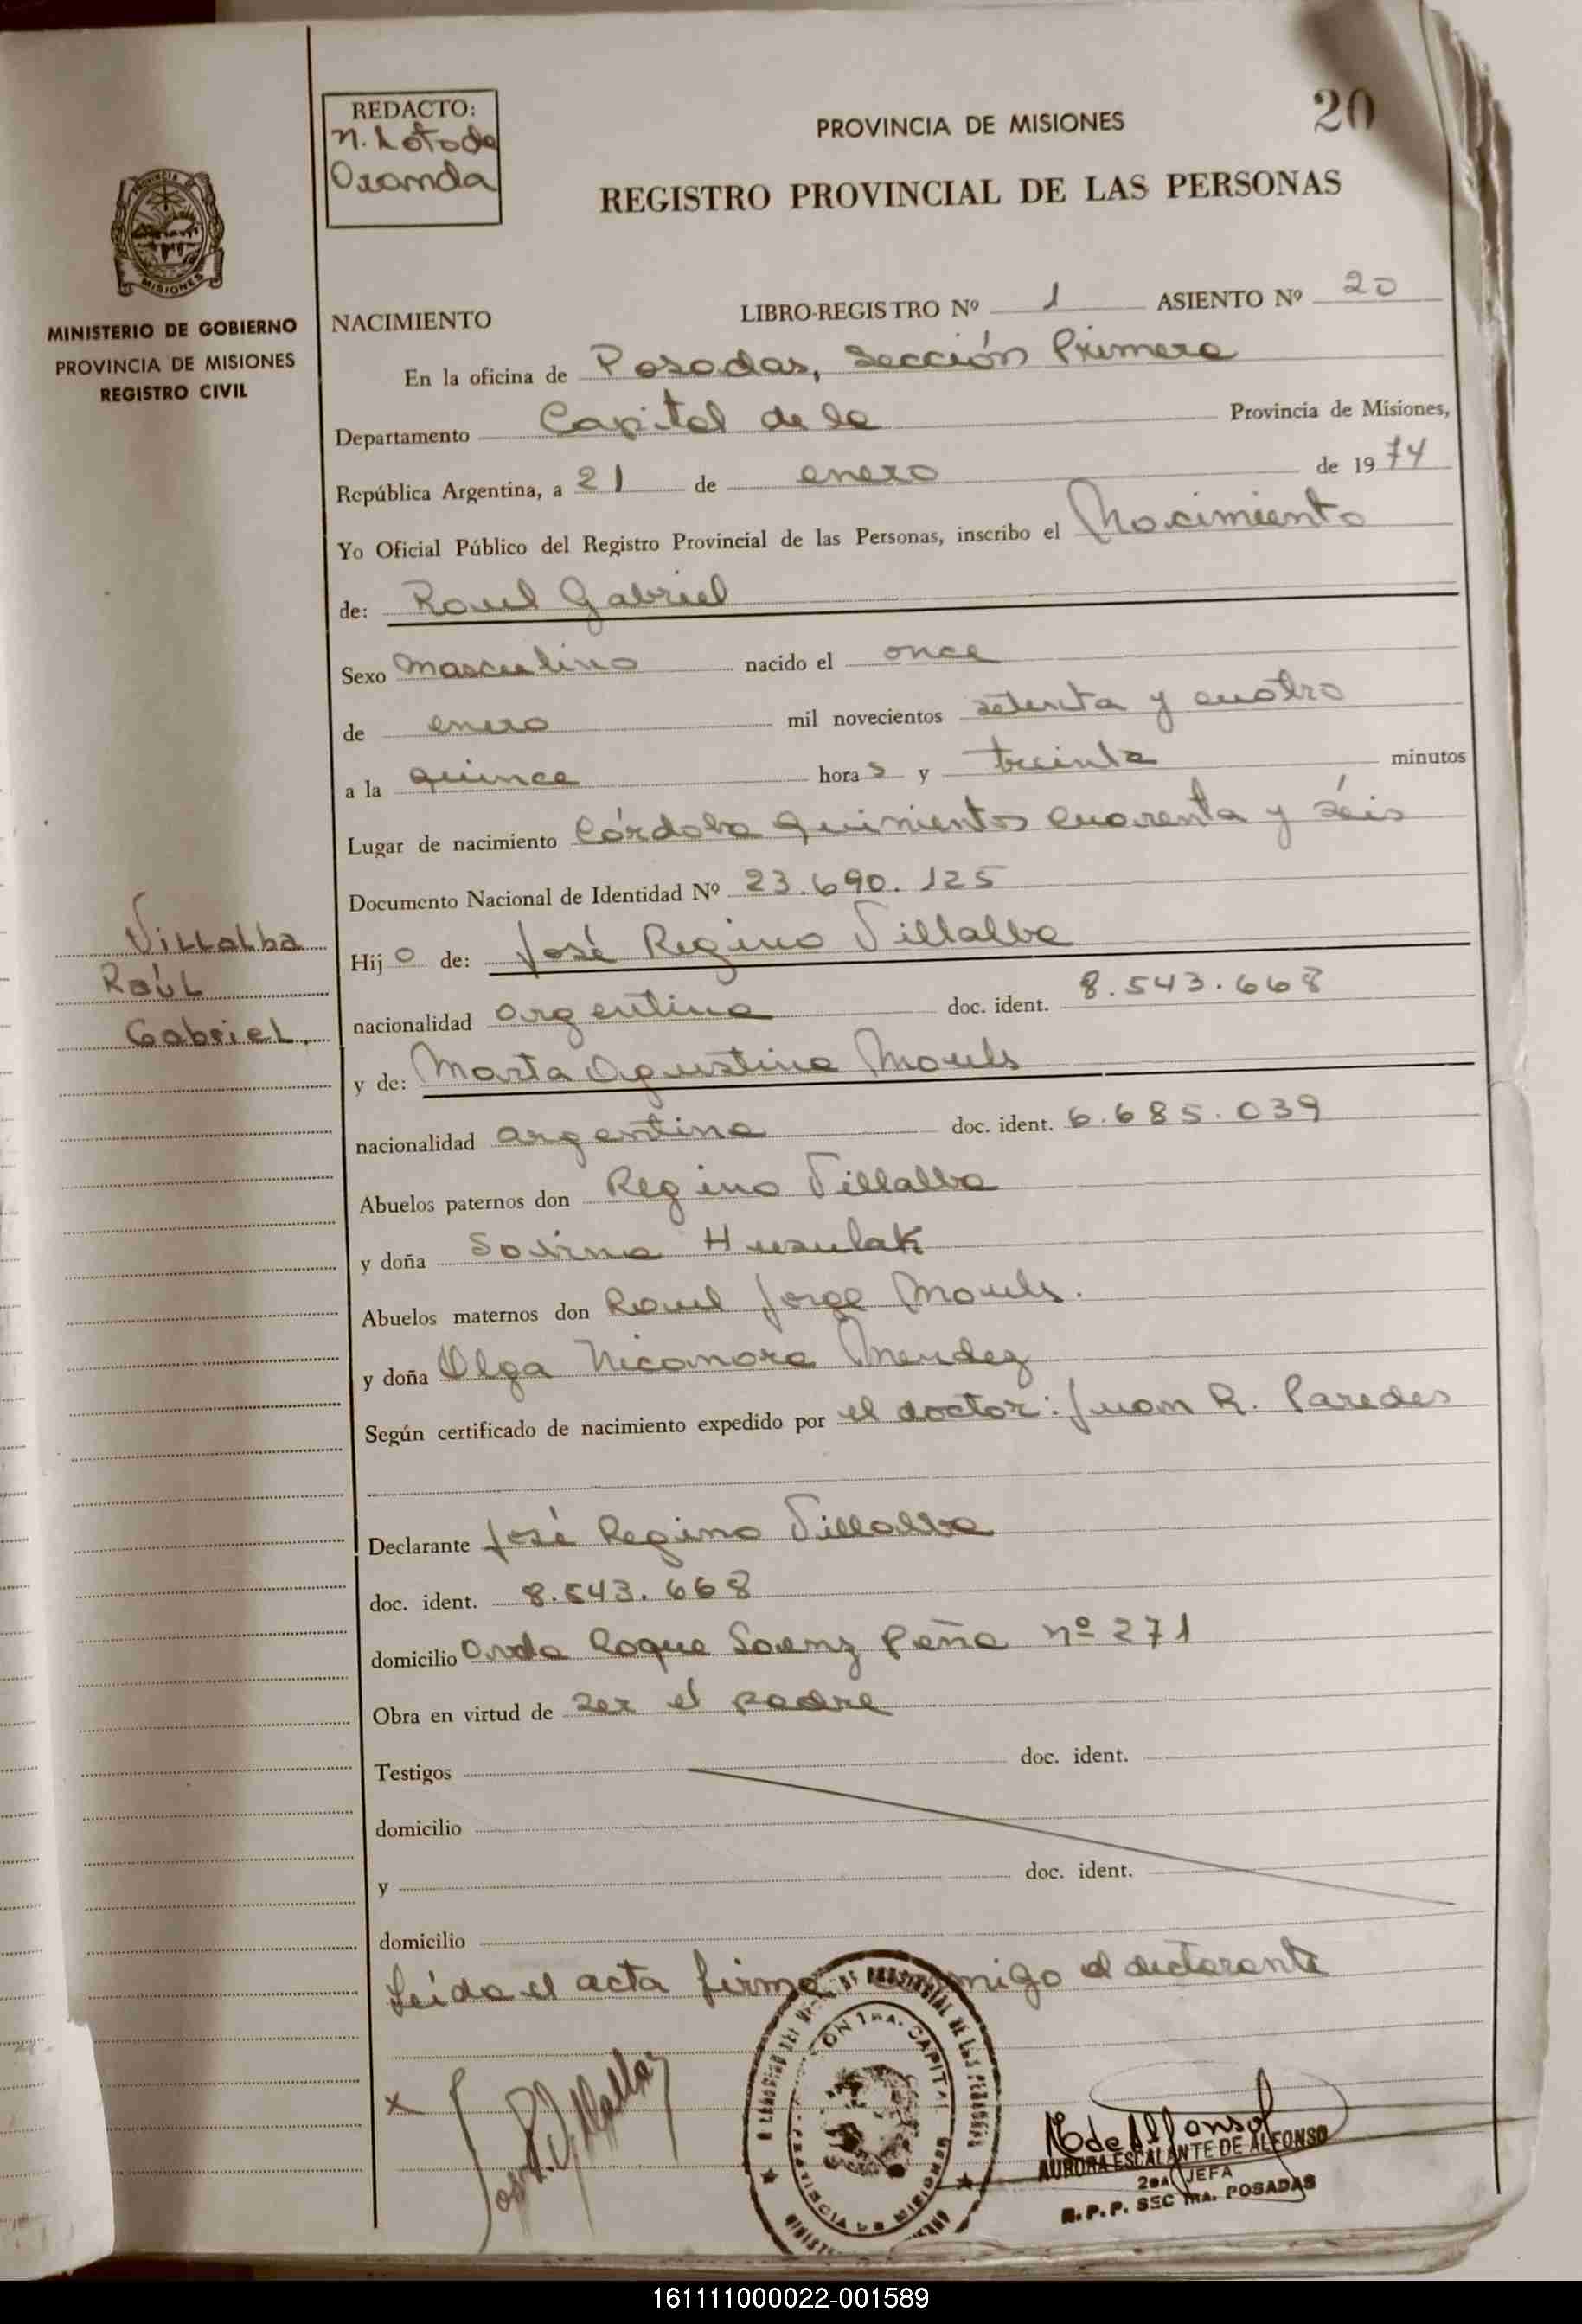 REDACTO:
N. Soto de
Aranda
PROVINCIA DE MISIONES
20
REGISTRO PROVINCIAL DE LAS PERSONAS
MISIONES
MINISTERIO DE GOBIERNO
PROVINCIA DE MISIONES
REGISTRO CIVIL
NACIMIENTO LIBRO-REGISTRO Nº 1 ASIENTO Nº 20
En la oficina de Posadas, Sección Primera
Departamento Capital de la Provincia de Misiones,
República Argentina, a 21 de enero de 1974
Yo Oficial Público del Registro Provincial de las Personas, inscribo el Nacimiento
de: Raul Gabriel
Sexo masculino nacido el once
de enero mil novecientos setenta y cuatro
a la quince horas y treinta minutos
Lugar de nacimiento Córdoba quinientos cuarenta y séis
Documento Nacional de Identidad Nº 23.690.125
Villalba
Raúl
Gabriel.
Hijo de: José Regino Villalba
nacionalidad argentina doc. ident. 8.543.668
y de: Marta Agustina
nacionalidad argentina doc. ident. 6.685.039
Abuelos paternos don Regino Villalba
y doña Huzulak
Abuelos maternos don Raul Jorge
y doña Olga Nicanora Mendez
Según certificado de nacimiento expedido por el doctor: Juan R. Paredes
Declarante José Regino Villalba
doc. ident. 8.543.668
domicilio Avda Roque Saenz Peña nº 271
Obra en virtud de ser el padre
Testigos doc. ident.
domicilio
y doc. ident.
domicilio
Leída el acta firma migo el declarante
X José R. Villalba
CAPITAL
AURORA ESCALANTE DE ALFONSO
2DA JEFA
R.P.P. SEC 1RA. POSADAS
161111000022-001589